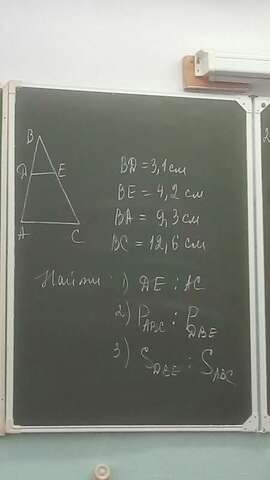 B
D E
A C
BD = 3,1 см
BE = 4,2 см
BA = 9,3 см
BC = 12,6 см
Найти: 1) DE : AC
2) P_ABC : P_DBE
3) S_DBE : S_ABC